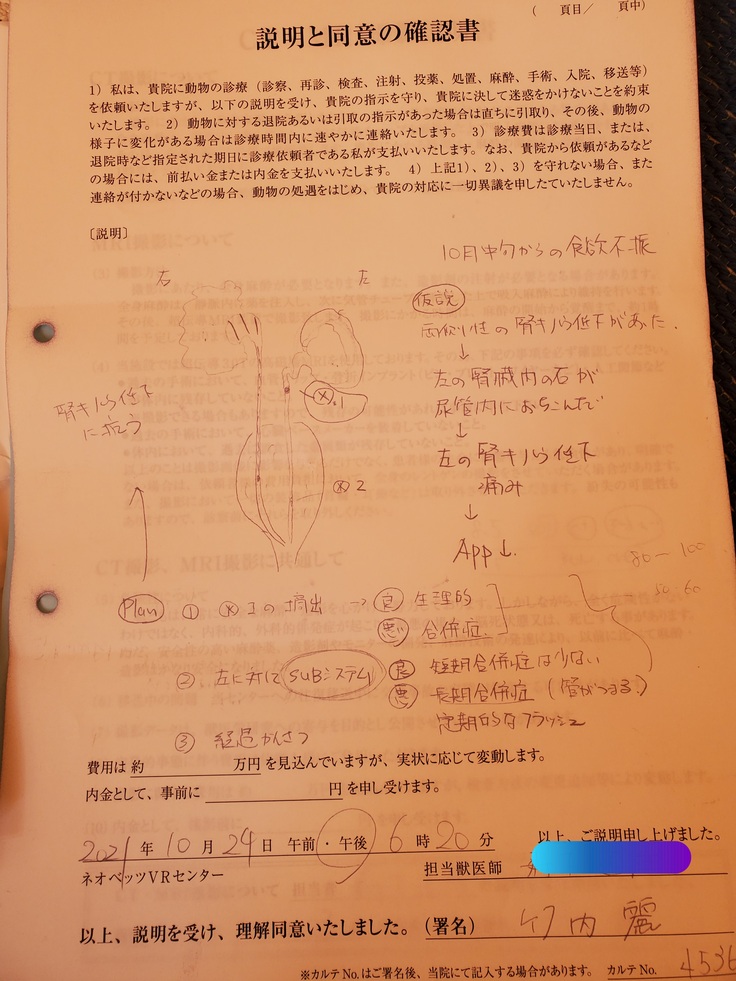 ( 頁目/ 頁中)
説明と同意の確認書
1) 私は、貴院に動物の診療(診察、再診、検査、注射、投薬、処置、麻酔、手術、入院、移送等)
を依頼いたしますが、以下の説明を受け、貴院の指示を守り、貴院に決して迷惑をかけないことを約束
いたします。 2) 動物に対する退院あるいは引取の指示があった場合は直ちに引取り、その後、動物の
様子に変化がある場合は診療時間内に速やかに連絡いたします。 3) 診療費は診療当日、または、
退院時など指定された期日に診療依頼者である私が支払いいたします。なお、貴院から依頼があるなど
の場合には、前払い金または内金を支払いいたします。 4) 上記1)、2)、3) を守れない場合、また
連絡が付かないなどの場合、動物の処遇をはじめ、貴院の対応に一切異議を申したていたしません。
〔説明〕
10月中旬からの食欲不振
右 左
仮説
両側性の腎キノウ低下があった.
↓
左の腎臓内の石が
尿管内におちこんで
↓
左の腎キノウ低下
痛み
↓
App↓.
腎キノウ低下
に抗う
※1
※2
80-100
50-60
Plan ① ※1の摘出 → 良 生理的
悪い 合併症.
② 左に対して SUBシステム 良 短期合併症は少ない
悪 長期合併症 (管がつまる?)
定期的なフラッシュ
③ 経過かんさつ
費用は 約 万円 を見込んでいますが、実状に応じて変動します。
内金として、事前に 円 を申し受けます。
2021 年 10 月 24 日 午前・午後 6 時 20 分
以上、ご説明申し上げました。
ネオベッツVRセンター 担当獣医師
以上、説明を受け、理解同意いたしました。(署名) 竹内 麗
※カルテ No.はご署名後、当院にて記入する場合があります。 カルテ No. 4536